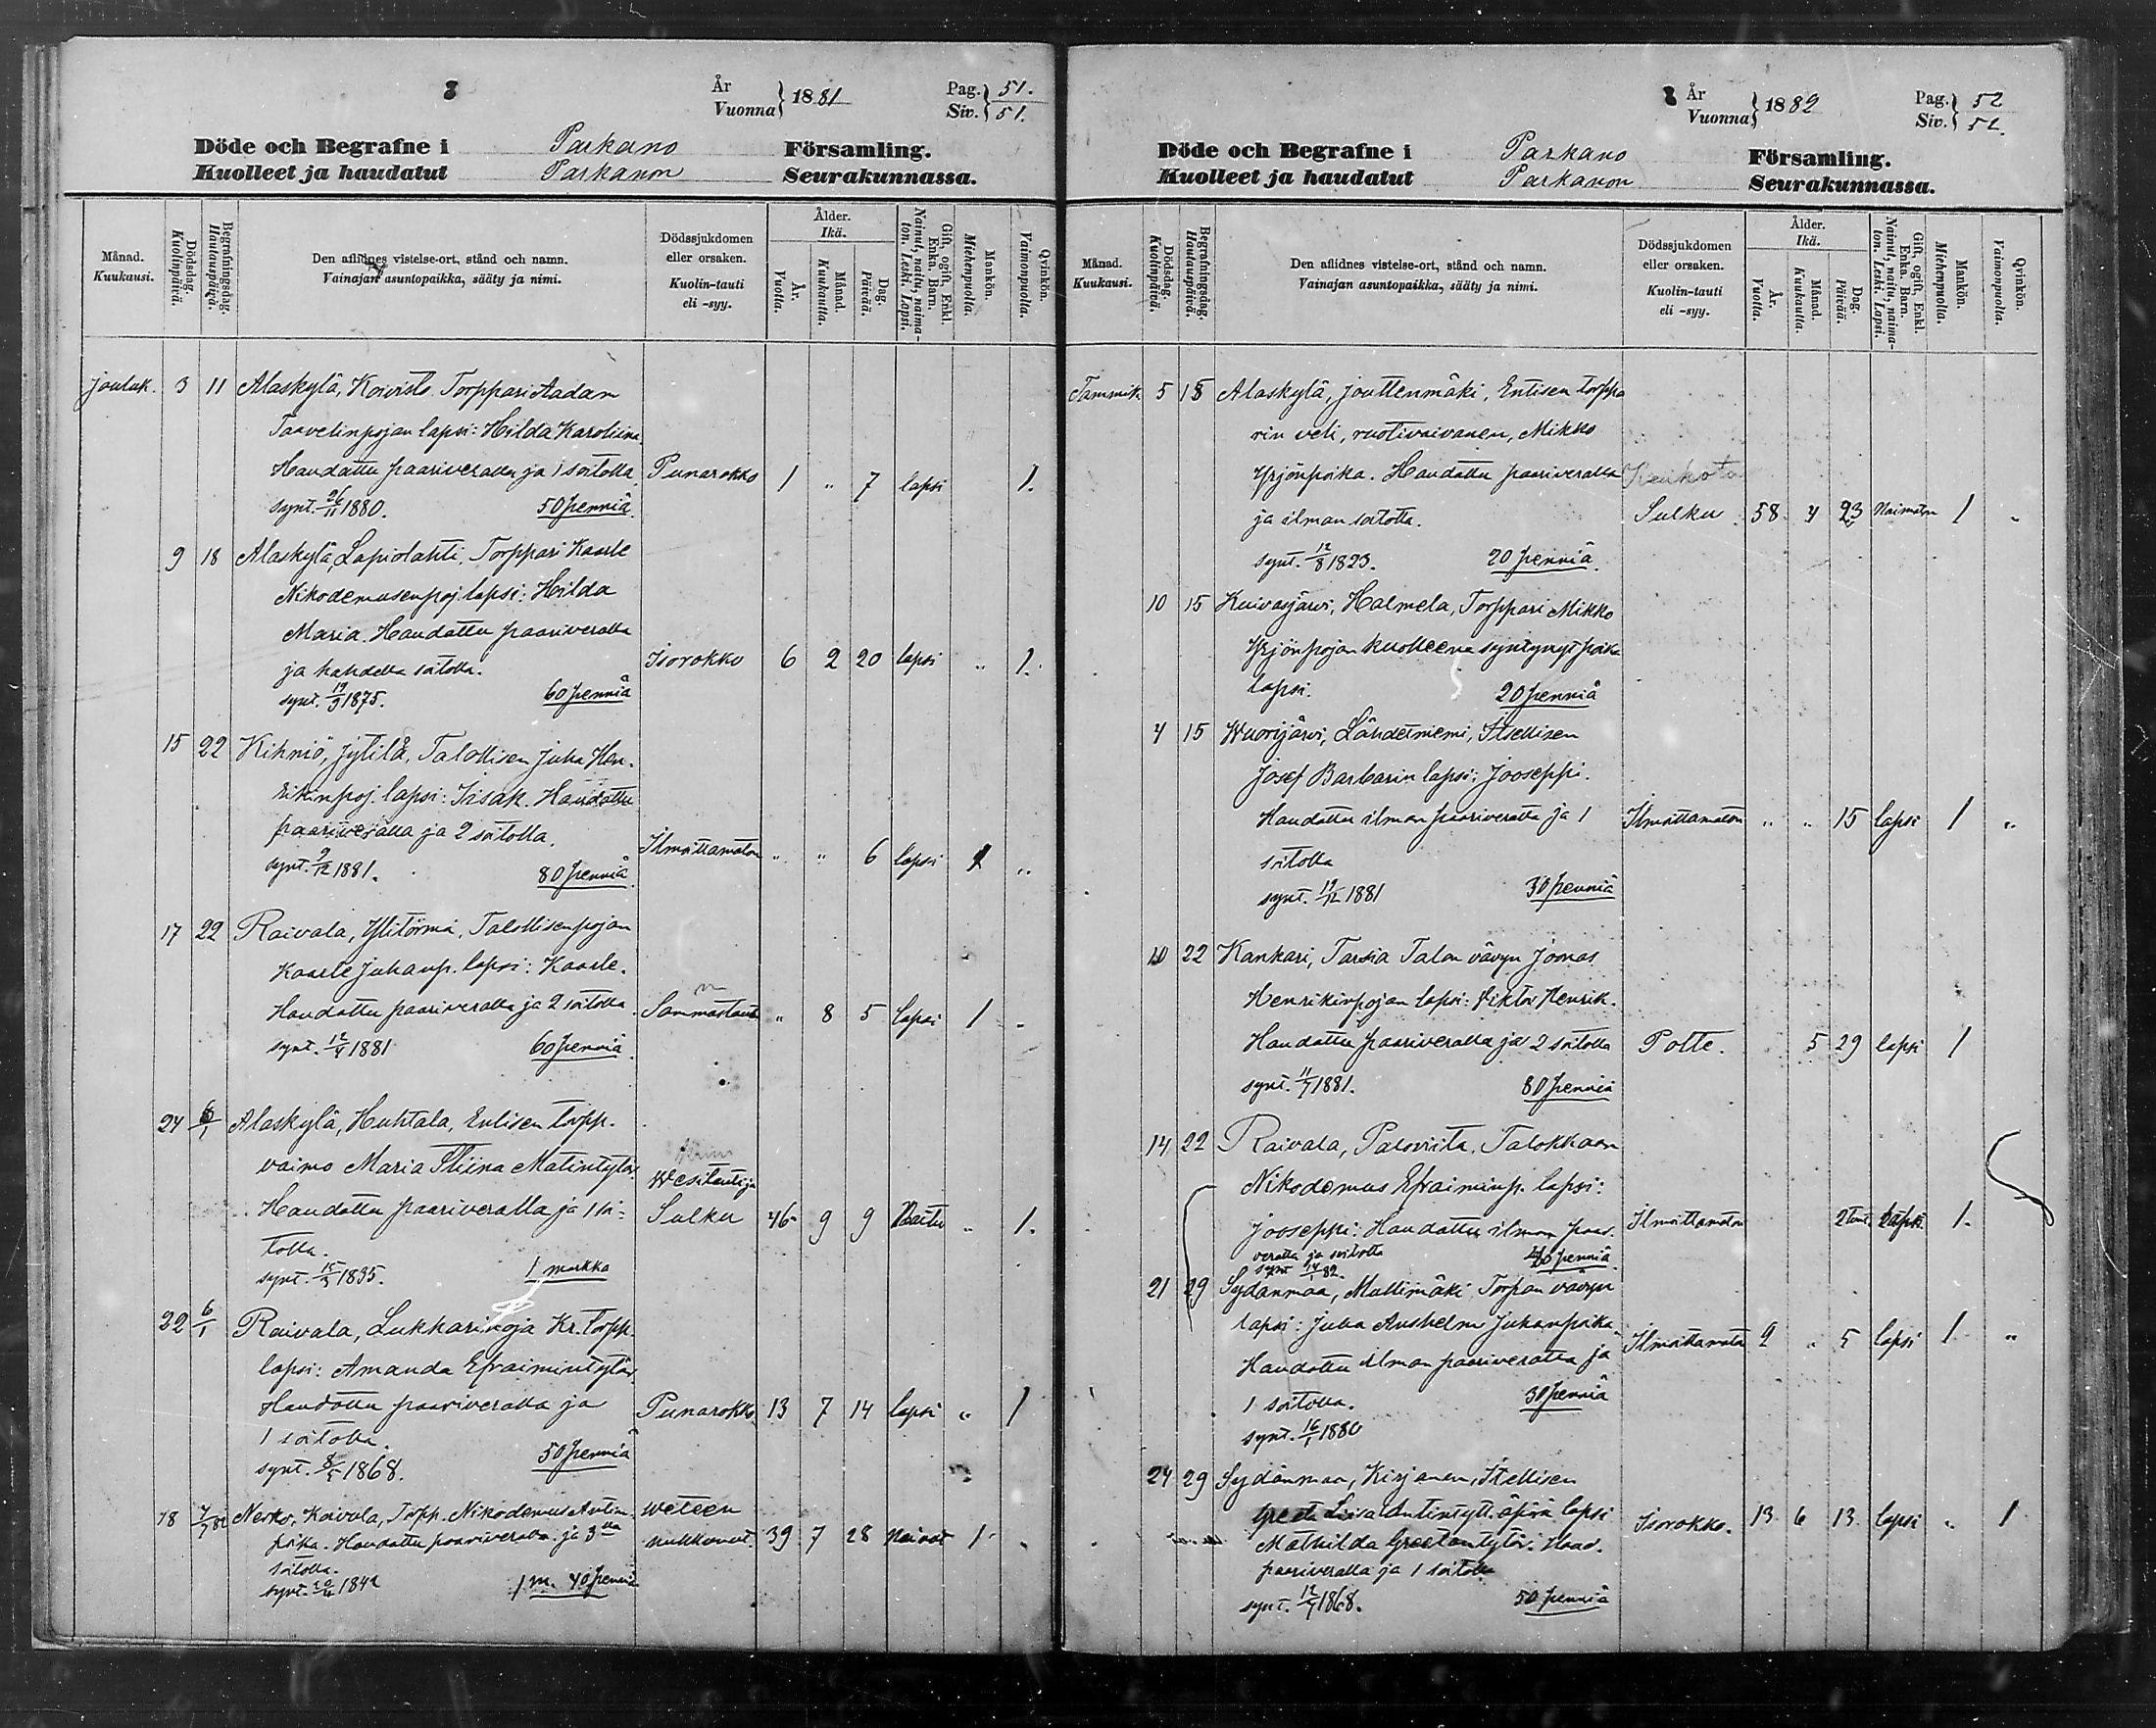 År
Vuonna } 1881
Pag.
Siv. } 51.
51.
Döde och Begrafne i Parkano Församling.
Kuolleet ja haudatut Parkanon Seurakunnassa.
Månad.
Kuukausi.
Dödsdag.
Kuolinpäivä.
Begrafningsdag.
Hautauspäivä.
Den aflidnes vistelse-ort, stånd och namn.
Vainajan asuntopaikka, sääty ja nimi.
Dödssjukdomen
eller orsaken.
Kuolin-tauti
eli -syy.
Ålder.
Ikä.
År.
Vuotta.
Månad.
Kuukautta.
Dag.
Päivää.
Gift, ogift, Enkl.
Enka. Barn.
Nainut, naitu, naima-
ton. Leski. Lapsi.
Mankön.
Miehenpuolia.
Qvinkön.
Vaimonpuolia.
Jouluk. 3 11 Alaskylä, Koivisto. Torppari Aadam
Taavetinpojan lapsi: Hilda Karoliina
Haudattu paariveralla ja 1 soitolla. Punarokko 1 " 7 lapsi 1.
synt. 26/11 1880. 50 penniä.
9 18 Alaskylä, Lapiolahti. Torppari Kaarle
Nikodemusenpoj. lapsi: Hilda
Maria. Haudattu paariveralla
ja kahdella soitolla. Isorokko 6 2 20 lapsi " 1.
synt. 19/9 1875. 60 penniä
15 22 Kihniö, Jytilä, Talollisen Juha Hen-
rikinpoj. lapsi: Iisak. Haudattu
paariveralla ja 2 soitolla. Ilmoittamaton " " 6 lapsi 1 "
synt. 9/12 1881. 80 penniä.
17 22 Raivala, Ylitörmä, Talollisenpojan
Kaarle Juhanp. lapsi: Kaarle.
Haudattu paariveralla ja 2 soitolla. Sammastauti " 8 5 lapsi 1 "
synt. 12/4 1881 60 penniä.
24 6/1 Alaskylä, Huhtala, Entisen torpp.
vaimo Maria Stiina Matintytär. Wesitauti ja
Haudattu paariveralla ja 1 soi- Sulku 46 9 9 Naitu " 1.
tolla.
synt. 15/3 1835. 1 markka
22 6/1 Raivala, Lukkarinoja Kr. torpp.
lapsi: Amanda Efraimintytär.
Haudattu paariveralla ja Punarokko 13 7 14 lapsi " 1
1 soitolla.
synt. 8/5 1868. 50 penniä
18 7/7 82 Nerko, Koivula, Torpp. Nikodemus Antin Weteen
poika. Haudattu paariveralla ja 3lla hukkunut 39 7 28 Nainut 1 "
soitolla.
synt. 1842 1 m. 40 penniä
År
Vuonna } 1882
Pag.
Siv. } 52
52.
Döde och Begrafne i Parkano Församling.
Kuolleet ja haudatut Parkanon Seurakunnassa.
Månad.
Kuukausi.
Dödsdag.
Kuolinpäivä.
Begrafningsdag.
Hautauspäivä.
Den aflidnes vistelse-ort, stånd och namn.
Vainajan asuntopaikka, sääty ja nimi.
Dödssjukdomen
eller orsaken.
Kuolin-tauti
eli -syy.
Ålder.
Ikä.
År.
Vuotta.
Månad.
Kuukautta.
Dag.
Päivää.
Gift, ogift, Enkl.
Enka. Barn.
Nainut, naitu, naima-
ton. Leski. Lapsi.
Mankön.
Miehenpuolia.
Qvinkön.
Vaimonpuolia.
Tammik. 5 15 Alaskylä, Jouttenmäki, Entisen torppa
rin veli, ruotivaivanen, Mikko
Yrjönpoika. Haudattu paariveralla Keuhkota
ja ilman soitotta. Sulku 58 4 23 Naimaton 1 "
synt. 12/8 1823. 20 penniä.
10 15 Kuivasjärvi, Halmela, Torppari Mikko
Yrjönpojan kuolleena syntynyt poika
lapsi. 20 penniä
4 15 Wuorijärvi, Lähdetniemi, Itsellisen
Josef Barbarin lapsi: Jooseppi.
Haudattu ilman paariveratta ja 1 Ilmoittamaton " " 15 lapsi 1 "
soitolla
synt. 19/12 1881 30 penniä
10 22 Kankari, Tarsia Talon vävyn Joonas
Henrikinpojan lapsi: Viktor Henrik.
Haudattu paariveralla ja 2 soitolla Polte. 5 29 lapsi 1
synt. 11/7 1881. 80 penniä
14 22 Raivala, Palovista. Talokkaan
Nikodemus Efraiminp. lapsi:
Jooseppi: Haudattu ilman paari- Ilmoittamaton 2 tunt. lapsi. 1.
veratta ja soitotta penniä
synt 14/1 82.
21 29 Sydänmaa, Mallimäki Torpan vävyn
lapsi: Juha Anshelm Juhanpoika. Ilmoittamaton 2 " 5 lapsi 1 "
Haudattu ilman paariveratta ja
1 soitolla. 30 penniä
synt. 16/1 1880
24 29 Sydänmaa, Kirjanen, Itsellisen
Greeta Liisa Antintytt. äpärä lapsi Isorokko. 13 6 13 lapsi " 1
Mathilda Greetantytär. Haud.
paariveralla ja 1 soitolla
synt. 12/7 1868. 50 penniä